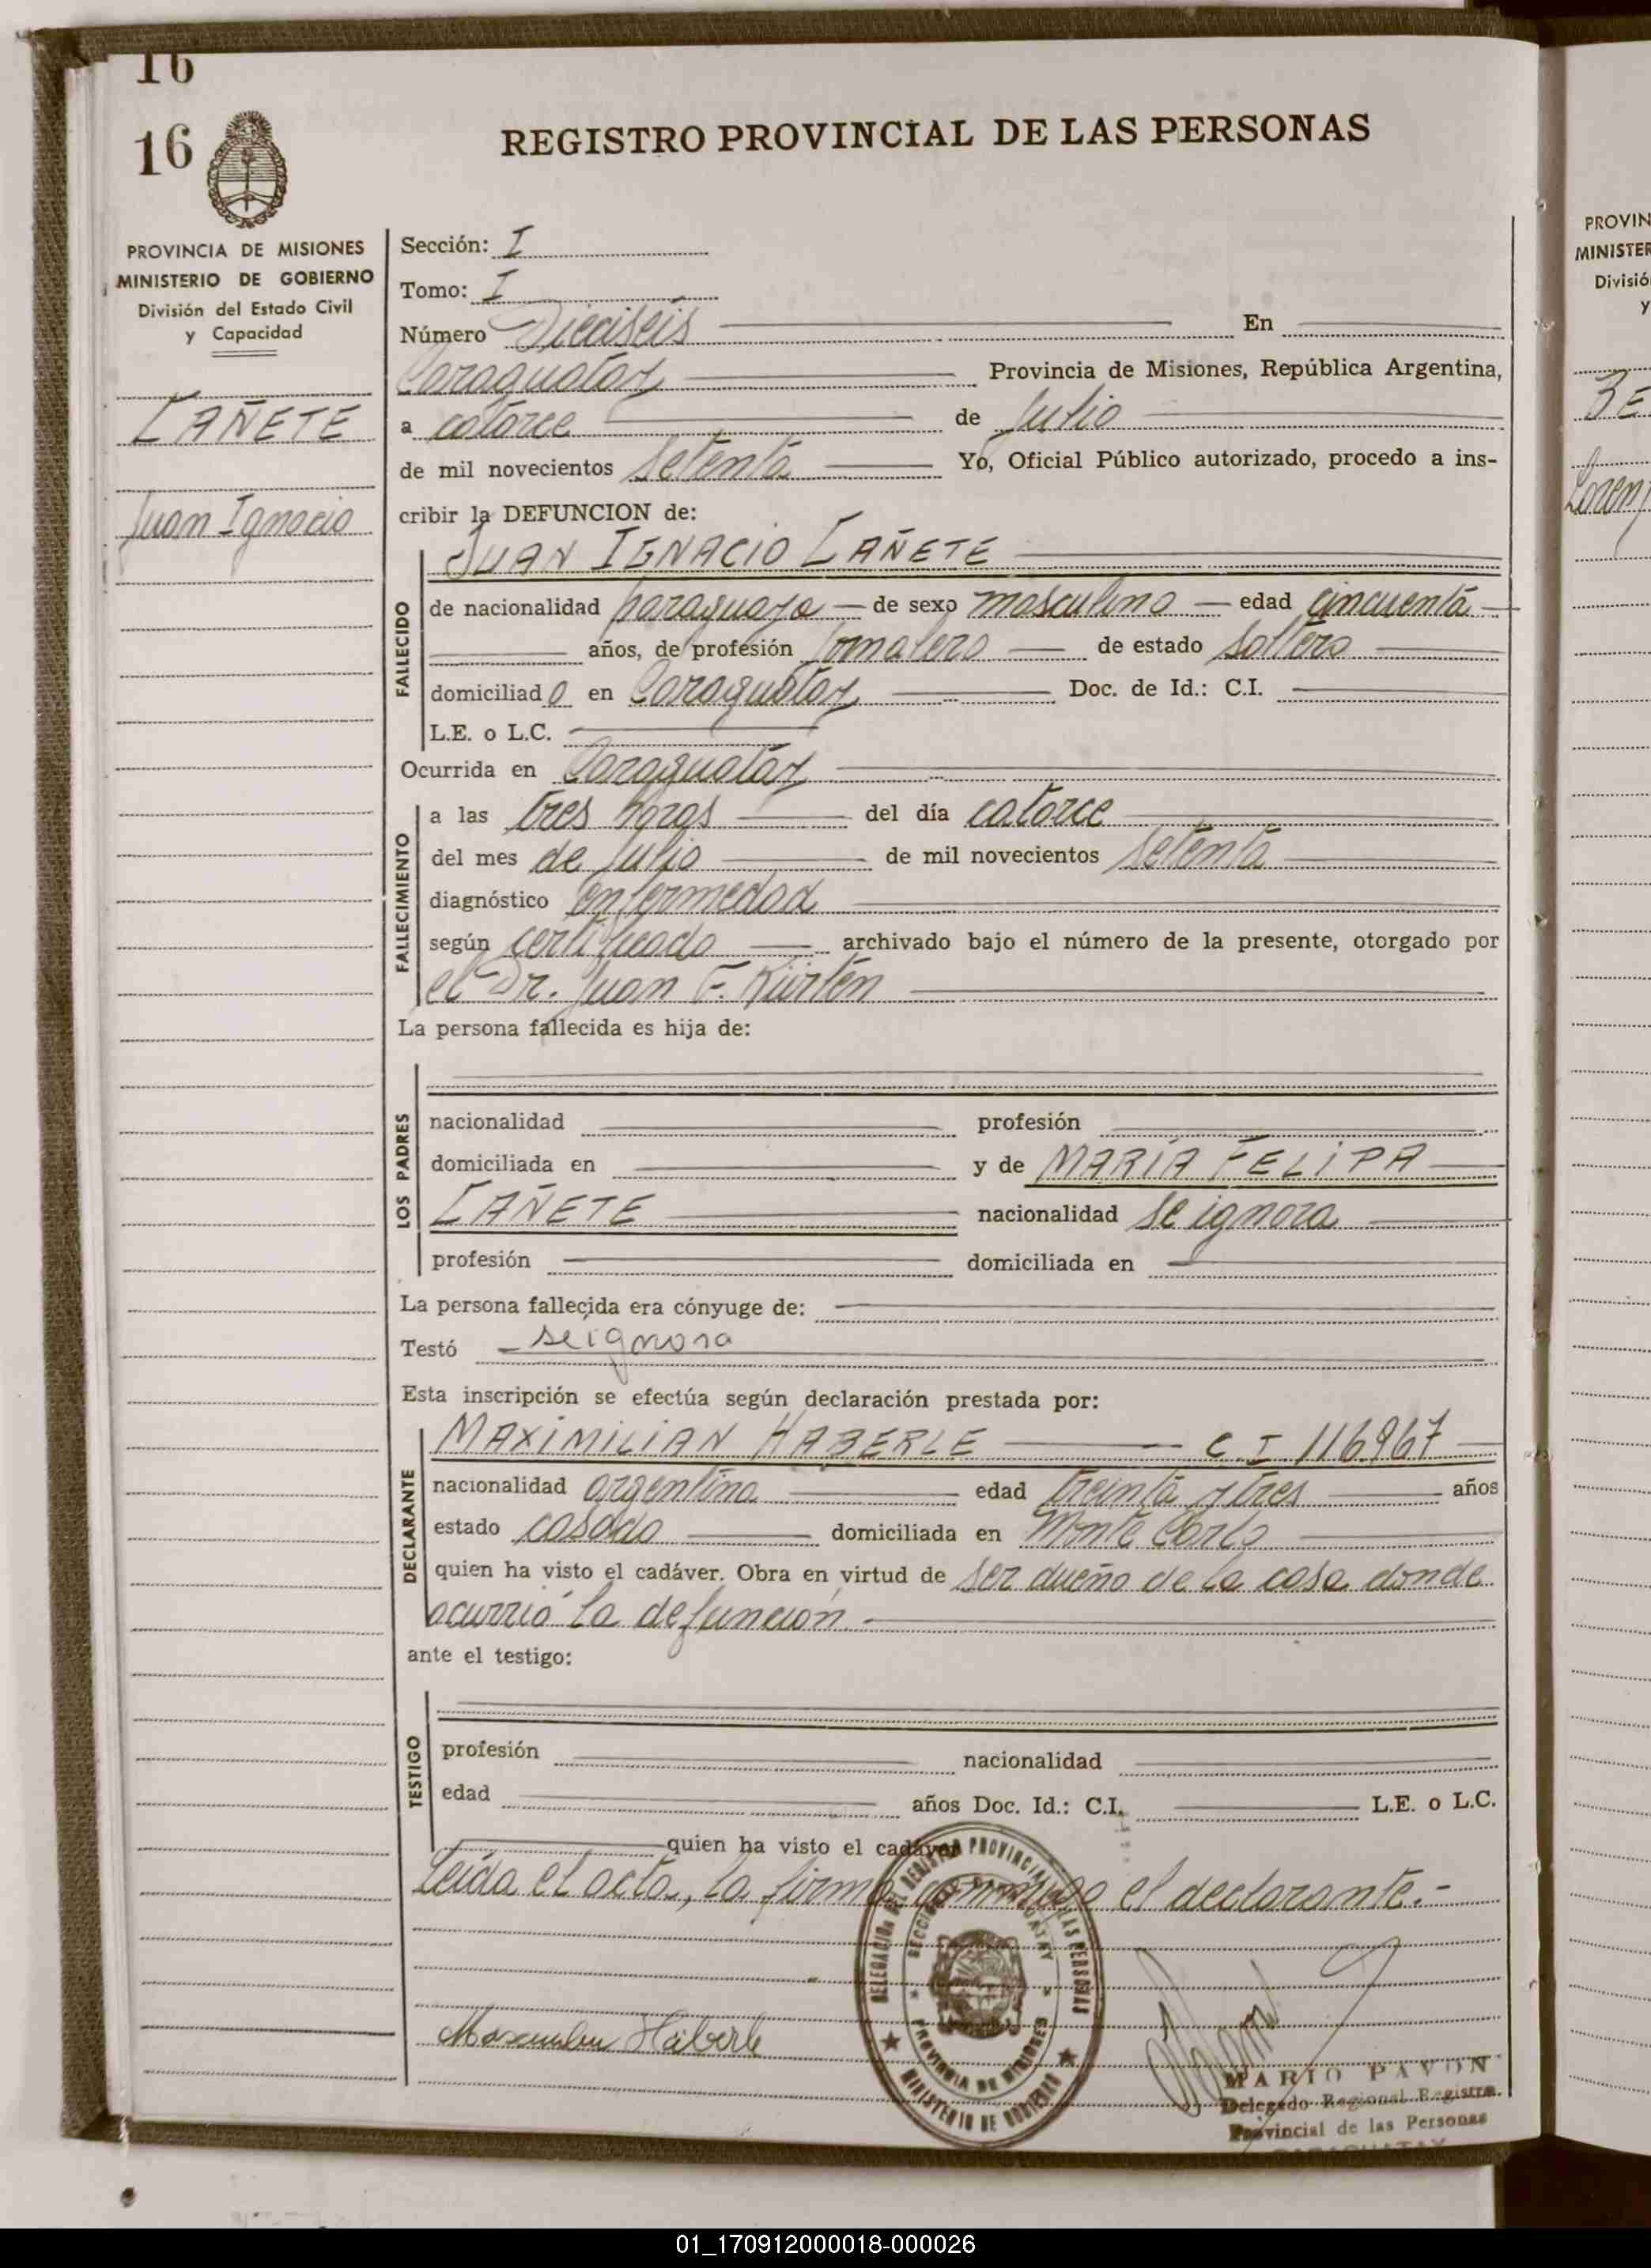 16
16
REGISTRO PROVINCIAL DE LAS PERSONAS
PROVINCIA DE MISIONES
MINISTERIO DE GOBIERNO
División del Estado Civil
y Capacidad
CAÑETE
Juan Ignacio
Sección: I
Tomo: I
Número Dieciseis En
Caraguatay Provincia de Misiones, República Argentina,
a catorce de Julio
de mil novecientos setenta Yo, Oficial Público autorizado, procedo a ins-
cribir la DEFUNCION de:
JUAN IGNACIO CAÑETE
FALLECIDO
de nacionalidad paraguaya de sexo masculino edad cincuenta
años, de profesión Jornalero de estado soltero
domiciliado en Caraguatay Doc. de Id.: C.I.
L.E. o L.C.
Ocurrida en Caraguatay
FALLECIMIENTO
a las tres horas del día catorce
del mes de Julio de mil novecientos setenta
diagnóstico enfermedad
según certificado archivado bajo el número de la presente, otorgado por
el Dr. Juan F. Kürten
La persona fallecida es hija de:
LOS PADRES
nacionalidad profesión
domiciliada en y de MARIA FELIPA
CAÑETE nacionalidad se ignora
profesión domiciliada en
La persona fallecida era cónyuge de:
Testó se ignora
Esta inscripción se efectúa según declaración prestada por:
DECLARANTE
MAXIMILIAN HABERLE C I 116967
nacionalidad argentina edad treinta y tres años
estado casado domiciliada en Monte Carlo
quien ha visto el cadáver. Obra en virtud de ser dueño de la casa donde
ocurrió la defunción.
ante el testigo:
TESTIGO
profesión nacionalidad
edad años Doc. Id.: C.I. L.E. o L.C.
quien ha visto el cadáver
Leída el acta, la firma conmigo el declarante.-
DELEGACION DEL REGISTRO PROVINCIAL DE LAS PERSONAS
PROVINCIA DE MISIONES
MINISTERIO DE GOBIERNO
Haberle
MARIO PAVON
Delegado Regional Registro
Provincial de las Personas
CARAGUATAY
PROVIN
MINISTER
Divisió
y
01_170912000018-000026